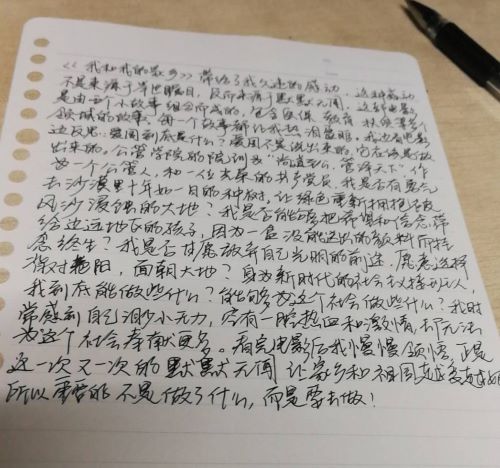 《我和我的家乡》带给了我久违的感动，这种感动
不是来源于举世瞩目，反而来源于默默无闻。这部电影
是由五个小故事组合而成的，包含医保、教育、扶贫等多个
领域的故事，每一个故事都让我热泪盈眶。我边看电影
边反思：爱国到底是什么？爱国不是说出来的，它应该是做
出来的。公管学院的院训为"尚道至公，管泽天下"，作
为一个公管人，和一位光荣的共产党员，我是否有勇气
去沙漠里十年如一日的种树，让绿色重新拥抱已被
风沙侵蚀的大地？我是否能够把希望和信念带
给边远地区的孩子，因为一直没能送出的颜料而挂
念终生？我是否甘愿放弃自己光明的前途，愿意选择
背对艳阳，面朝大地？身为新时代的社会主义接班人，
我到底能做些什么？能够为这个社会做些什么？我时
常感到自己渺小无力，空有一腔热血和激情，却无法
为这个社会奉献更多。看完电影后我慢慢领悟，正是
这一次又一次的默默无闻，让家乡和祖国越变越好
所以重要的不是做了什么，而是要去做！